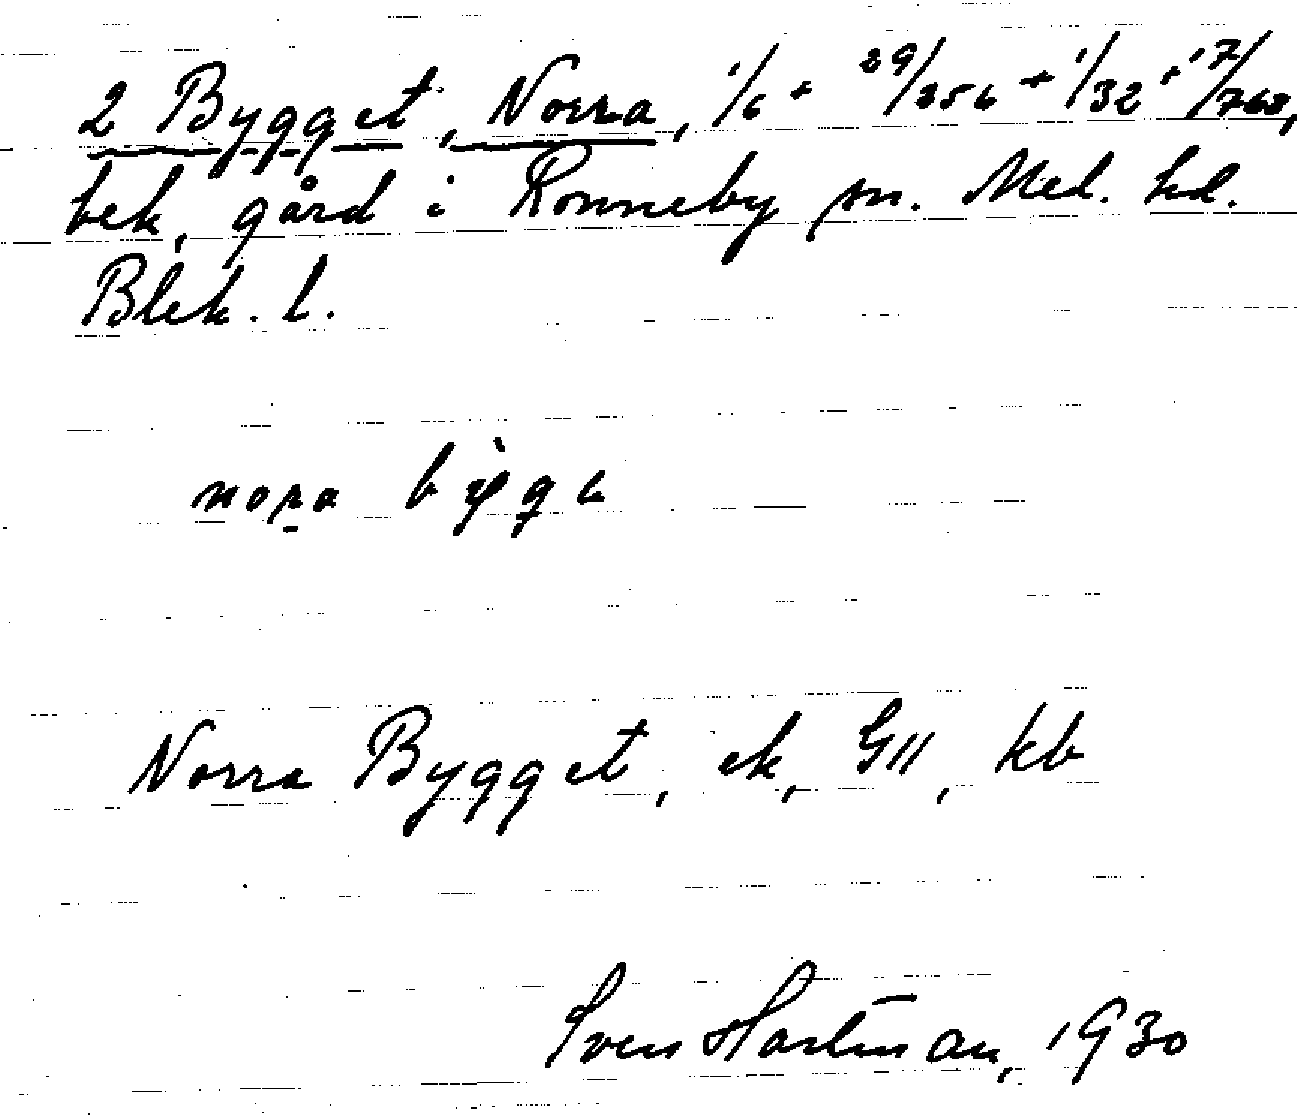 2 Bygget, Norra, 1/6 + 29/256 + 1/32 + 17/768,
bek, gård i Ronneby sn. Med. hd.
Blek. l.
Norra Bygget, ek, GII, kb
Sven Hartman, 1930